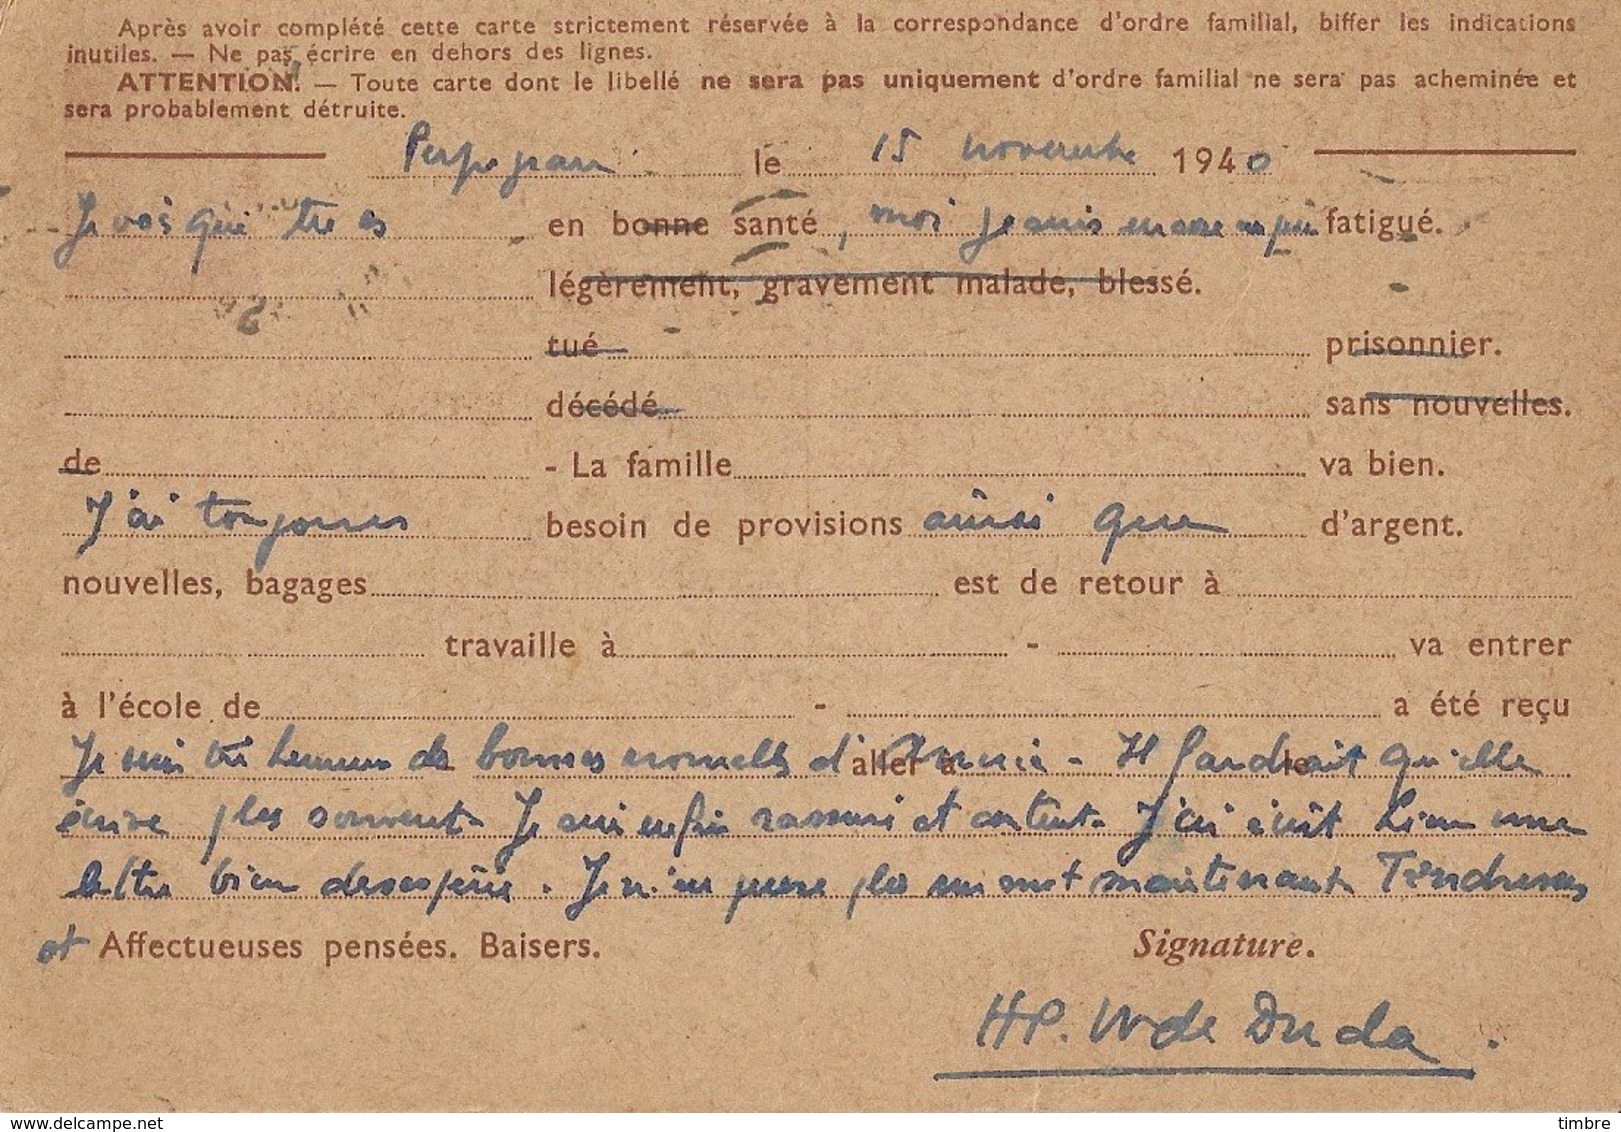 Après avoir complété cette carte strictement réservée à la correspondance d'ordre familial, biffer les indications
inutiles. — Ne pas écrire en dehors des lignes.
ATTENTION. — Toute carte dont le libellé ne sera pas uniquement d'ordre familial ne sera pas acheminée et
sera probablement détruite.
Perpignan le 15 novembre 1940
Je vois que tu es en bonne santé, moi je suis encore un peu fatigué.
légèrement, gravement malade, blessé.
tué prisonnier.
décédé sans nouvelles.
de - La famille va bien.
J'ai toujours besoin de provisions ainsi que d'argent.
nouvelles, bagages est de retour à
travaille à - va entrer
à l'école de - a été reçu
Je suis très heureux de bonnes nouvelles d' aller à - Il faudrait le qu'elle
écrive plus souvent. Je suis enfin rassuré et content. J'ai écrit une
lettre bien desespérée. Je n'en pense plus un mot maintenant. Tendresses
et Affectueuses pensées. Baisers.
Signature.
HP.
menbel.com
timbre